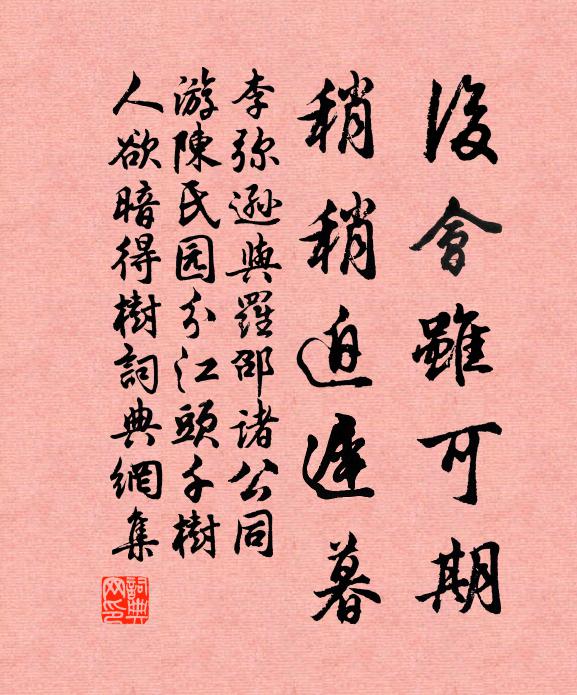 後會雖可期
稍稍迫遲暮
李弥遜與羅邵諸公同
游陳民园分江頭千樹
人欲暗得樹詞典網集
詞典網印